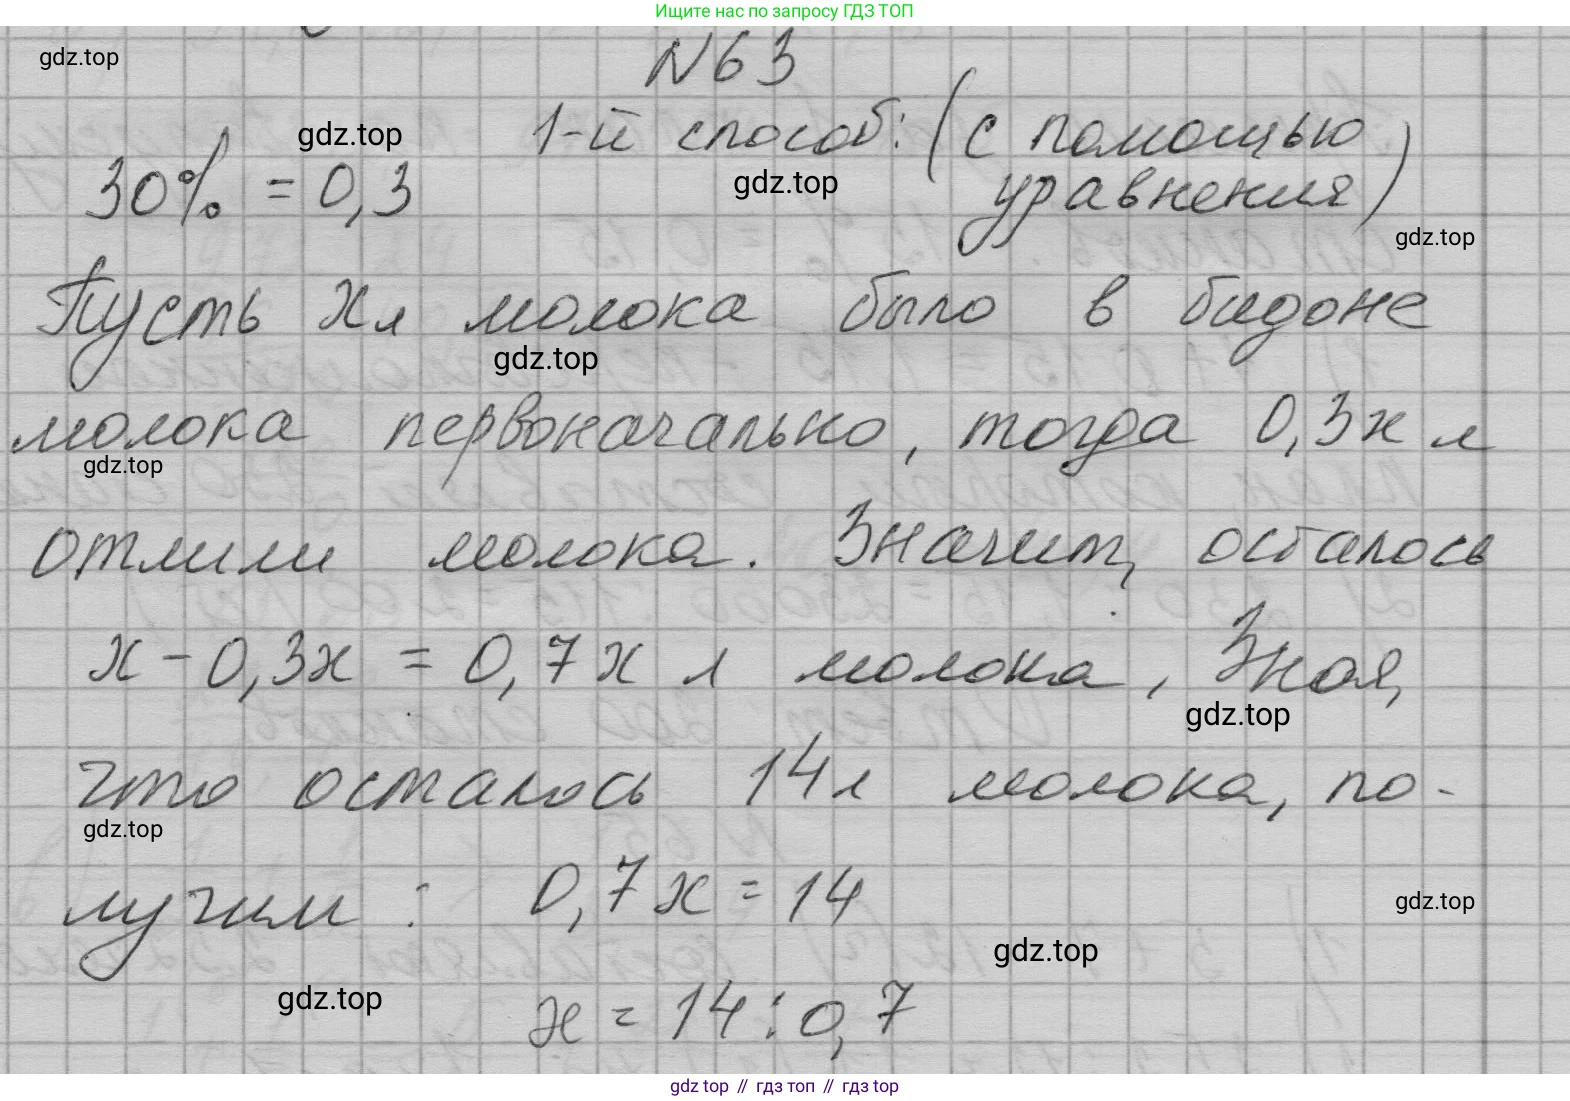 Ищите нас по запросу ГДЗ ТОП
gdz.top
N63
1-й способ: (с помощью
gdz.top
30% = 0,3
gdz.top
уравнения)
gdz.top
Пусть x л молока было в бидоне
gdz.top
молока первоначально, тогда 0,3x л
gdz.top
отлили молока. Значит, осталось
x - 0,3x = 0,7x л молока, Зная,
gdz.top
что осталось 14 л молока, по-
gdz.top
лучим: 0,7x = 14
gdz.top
gdz.top
gdz.top
x = 14 : 0,7
gdz top // гдз топ // гдз top